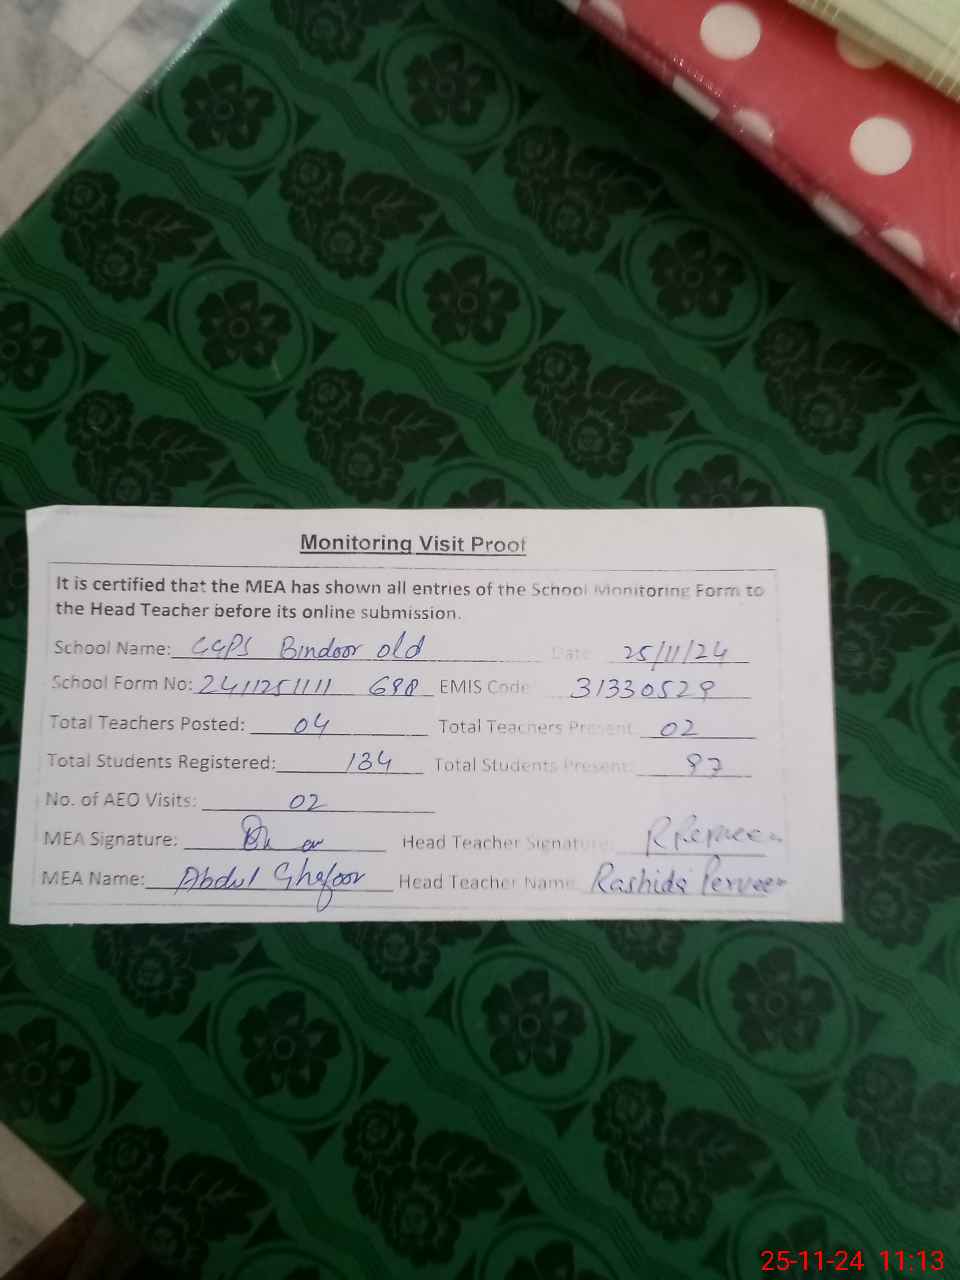 Monitoring Visit Proof
It is certified that the MEA has shown all entries of the School Monitoring Form to
the Head Teacher before its online submission.
School Name: GGPS Bindoor old Date: 25/11/24
School Form No: 2411251111 698 EMIS Code: 31330529
Total Teachers Posted: 04 Total Teachers Present: 02
Total Students Registered: 134 Total Students Present: 97
No. of AEO Visits: 02
MEA Signature: Head Teacher Signature: RPerveen
MEA Name: Abdul Ghafoor Head Teacher Name: Rashida Perveen
25-11-24 11:13